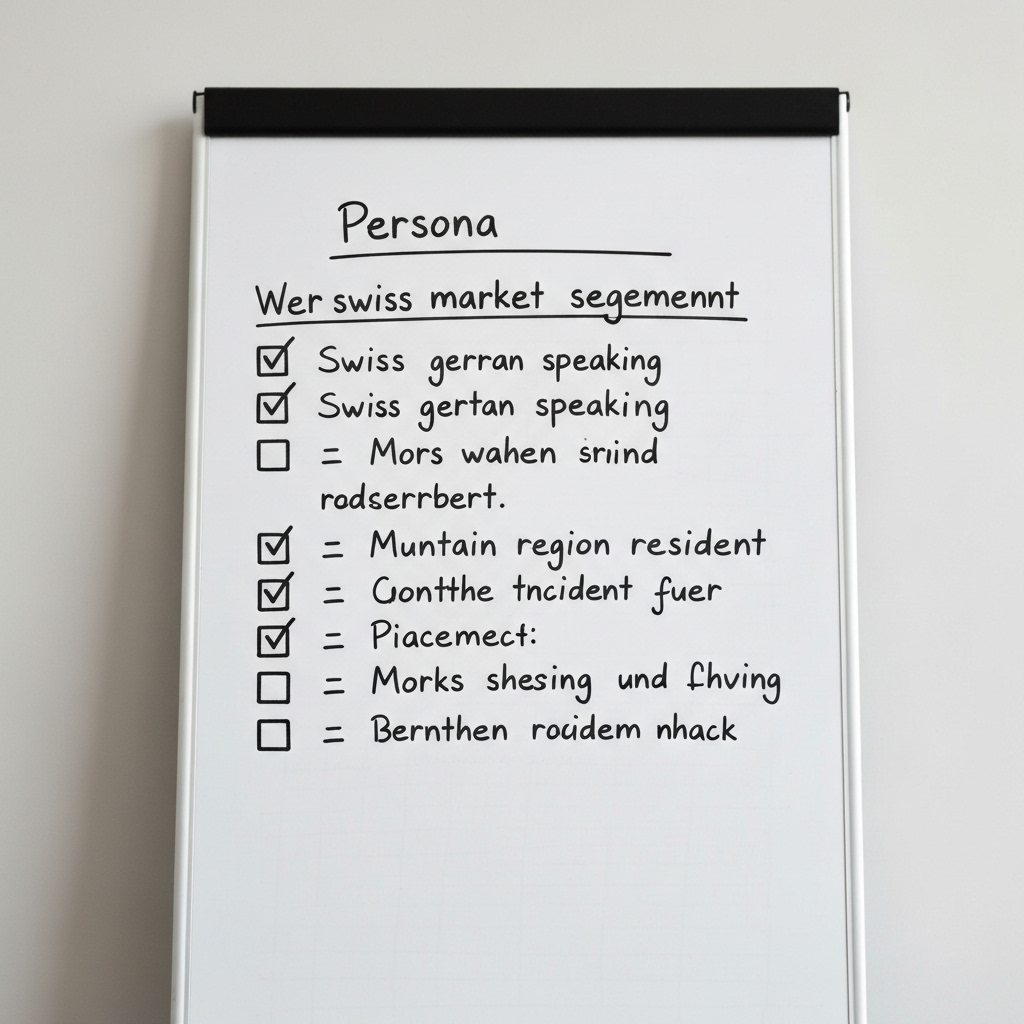 Persona
Wer swiss market segemennt
Swiss gerran speaking
Swiss gertan speaking
= Mors wahen sriind
rodserrbert.
= Muntain region resident
= Contthe tncident fuer
= Piacemect:
= Morks shesing und fhving
= Bernthen rocidem nhack